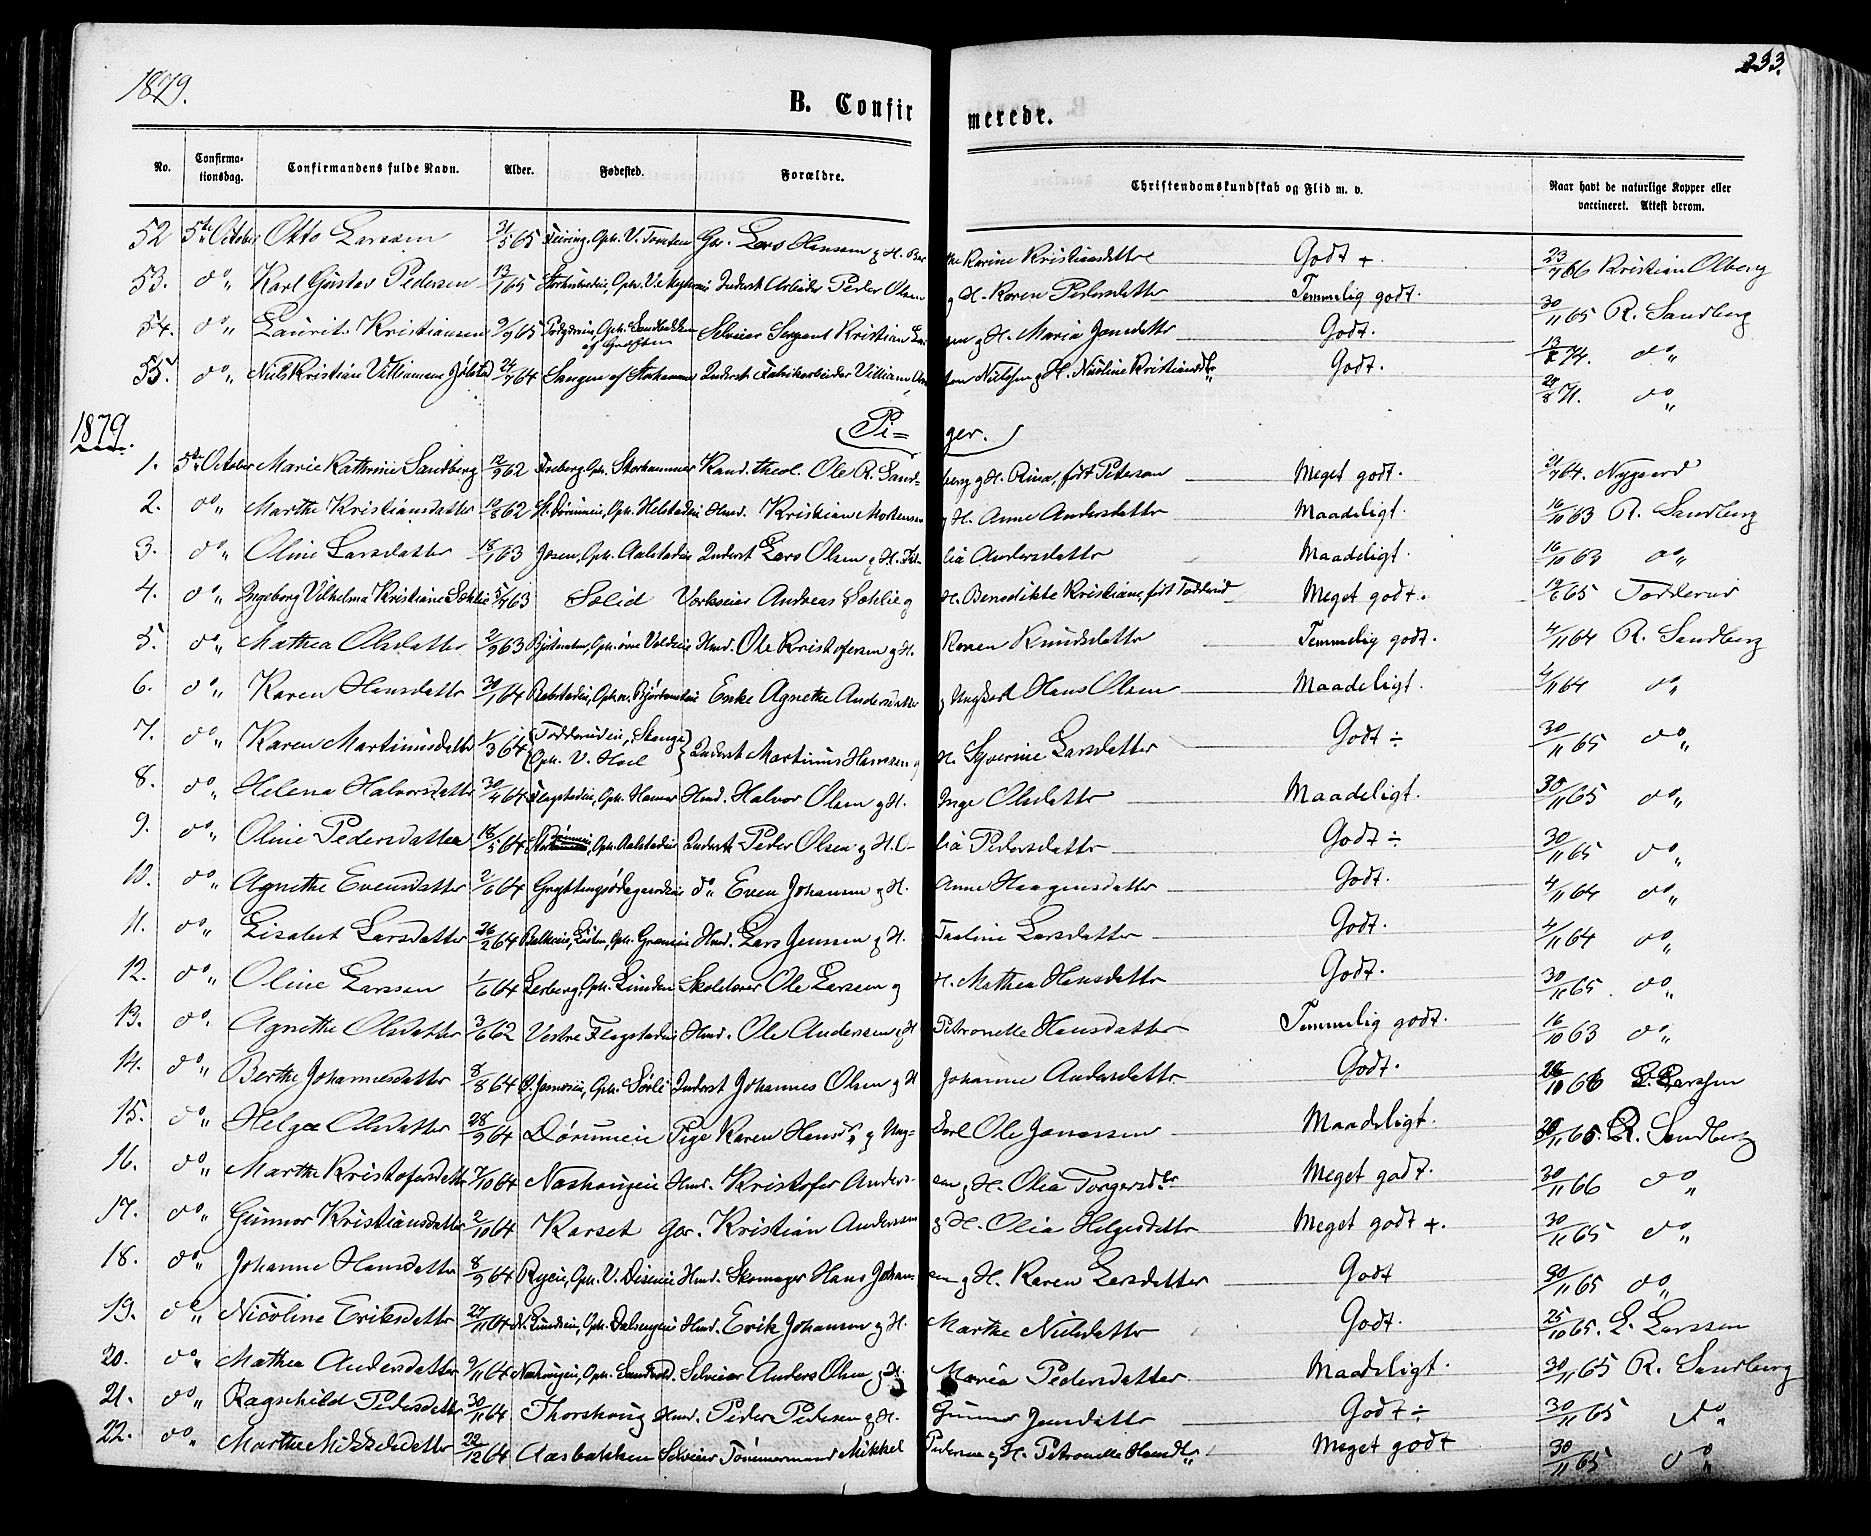 1879.
233.
B. Confirmerede.
No. Confirmationsdag. Confirmandens fulde Navn. Alder. Fødested. Forældre. Christendomskundskab og Flid m. v. Naar havt de naturlige Kopper eller vaccineret. Attest derom.
52 5te October Otto Larsen 21/5 65 Feiring, Oph. V. Tomten Gbr. Lars Hansen g H. Karine Kristiansdatter Godt + 23/7 66 Kristian Olberg
53. do Karl Gustav Pedersen 13/1 65 Inderst Arbeider Peder Olsen g H. Karen Pedersdatter Temmelig godt. 30/11 65 R. Sandberg
54. do Laurits Kristiansen 9/9 65 Oph. Sandbakken Selveier Sergent Kristian g H. Maria Jensdatter Godt. 13/8 74. do
55. do Nils Kristian Villiamsen Jølstad 24/7 64 Sangen af Storhammer Inderst Fabrikarbeider Villiam Nielsen g H. Nicoline Kristiansdtr Godt. 28/8 71. do
1879.
Piger.
1. 5te October Marie Kathrine Sandberg 12/9 62 Freberg, Oph. Storhammer Kand. theol. Ole R. Sandberg g H. Rina, født Petersen Meget godt. 21/7 64. Nygaard
2. do Marthe Kristiansdatter 10/8 62 N. Dørumeie, Oph. Helstadeie Hmd. Kristian Mortensen g H. Anne Andersdatter Maadeligt. 16/10 63 R. Sandberg
3. do Oline Larsdatter 18/1 63 Josen, Oph. Aalstadeie Inderst Lars Olsen g H. Andersdatter Maadeligt. 16/10 63 do
4. do Ingeborg Vilhelma Kristiane Sehlie 5/7 63 Solid Verkseier Andreas Sehlie g H. Benedikte Kristiane, født Todderud Meget godt. 19/6 65 Todderud
5. do Mathea Olsdatter 2/9 63 Oph. øvre Voldeie Hmd. Ole Kristofersen g H. Karen Knudsdatter Temmelig godt. 4/11 64 R. Sandberg
6. do Karen Hansdatter 30/1 64 Enke Agnethe Andersdatter g Ungkarl Hans Olsen Maadeligt. 4/11 64 do
7. do Karen Martinusdatter 1/3 64 Todderudeie, Stange Oph. V. Hoel Inderst Martinus Hanssen g H. Syverine Larsdatter Godt ÷ 30/11 65 do
8. do Helena Halvorsdatter 30/4 64 Flagstadeie, Oph. Hamar Hmd. Halvor Olsen g H. Inge Olsdatter Maadeligt. 30/11 65 do
9. do Oline Pedersdatter 16/5 64 Dørumeie, Oph. Aalstadeie Inderst Peder Olsen g H. Pedersdatter Godt ÷ 30/11 65 do
10. do Agnethe Evensdatter 2/6 64 Gryttingsødegaardeie do Even Johansen g H. Anne Haagensdatter Godt. 4/11 64 do
11. do Lisabet Larsdatter 26/2 64 Balkeeie, Østen, Oph. Grameie Hmd. Lars Jensen g H. Pauline Larsdatter Godt. 4/11 64 do
12. do Oline Larsen 1/6 64 Lerberg, Oph. Linden Skolelærer Ole Larsen g H. Mathea Hansdatter Godt. 30/11 65. do
13. do Agnethe Olsdatter 3/6 62 Vestre Flagstadeie Hmd. Ole Andersen g H Petronelle Hansdatter Temmelig godt. 16/10 63 do
14. do Berthe Johannesdatter 8/8 64 Oph. Sørli Inderst Johannes Olsen g H Johanne Andersdatter Godt. 26/10 66 L. Larssen
15. do Helga Olsdatter 28/9 64 Dørumeie Pige Karen Hansdtr g Ungkarl Ole Janssen Maadeligt. 30/11 65. R. Sandberg
16. do Marthe Kristofersdatter 7/10 64 Nashougeie Hmd. Kristofer Andersen g H. Olia Torgersdtr Meget godt. 30/11 66 do
17. do Gunnor Kristiansdatter 2/10 64 Karset Gbr. Kristian Andersen g H. Olia Helgesdatter Meget godt +. 30/11 65 do
18. do Johanne Hansdatter 8/9 64 Ryeie, Oph. V. Diseneie Hmd. Skomager Hans Johansen g H. Karen Larsdatter Godt 30/11 65 do
19. do Nicoline Eriksdatter 27/11 64 N. Lundeeie, Oph. Dalsengeie Hmd. Erik Johansen g H. Marthe Nilsdatter Godt. 25/10 65. L. Larssen
20. do Mathea Andersdatter 9/11 64 Nashougeie, Oph. Sandvold Selveier Anders Olsen g H. Maria Pedersdatter Maadeligt. 30/11 65 R. Sandberg
21. do Ragnhild Pedersdatter 30/11 64 Thorshoug Hmd. Peder Pedersen g H. Gunnor Jensdatter Godt ÷ 30/11 65 do
22. do Marthe Mikkelsdatter 22/12 64 Aasbakken Selveier Tømmermand Mikkel Pedersen g H. Petronelle Hansdtr Meget godt 30/11 65 do